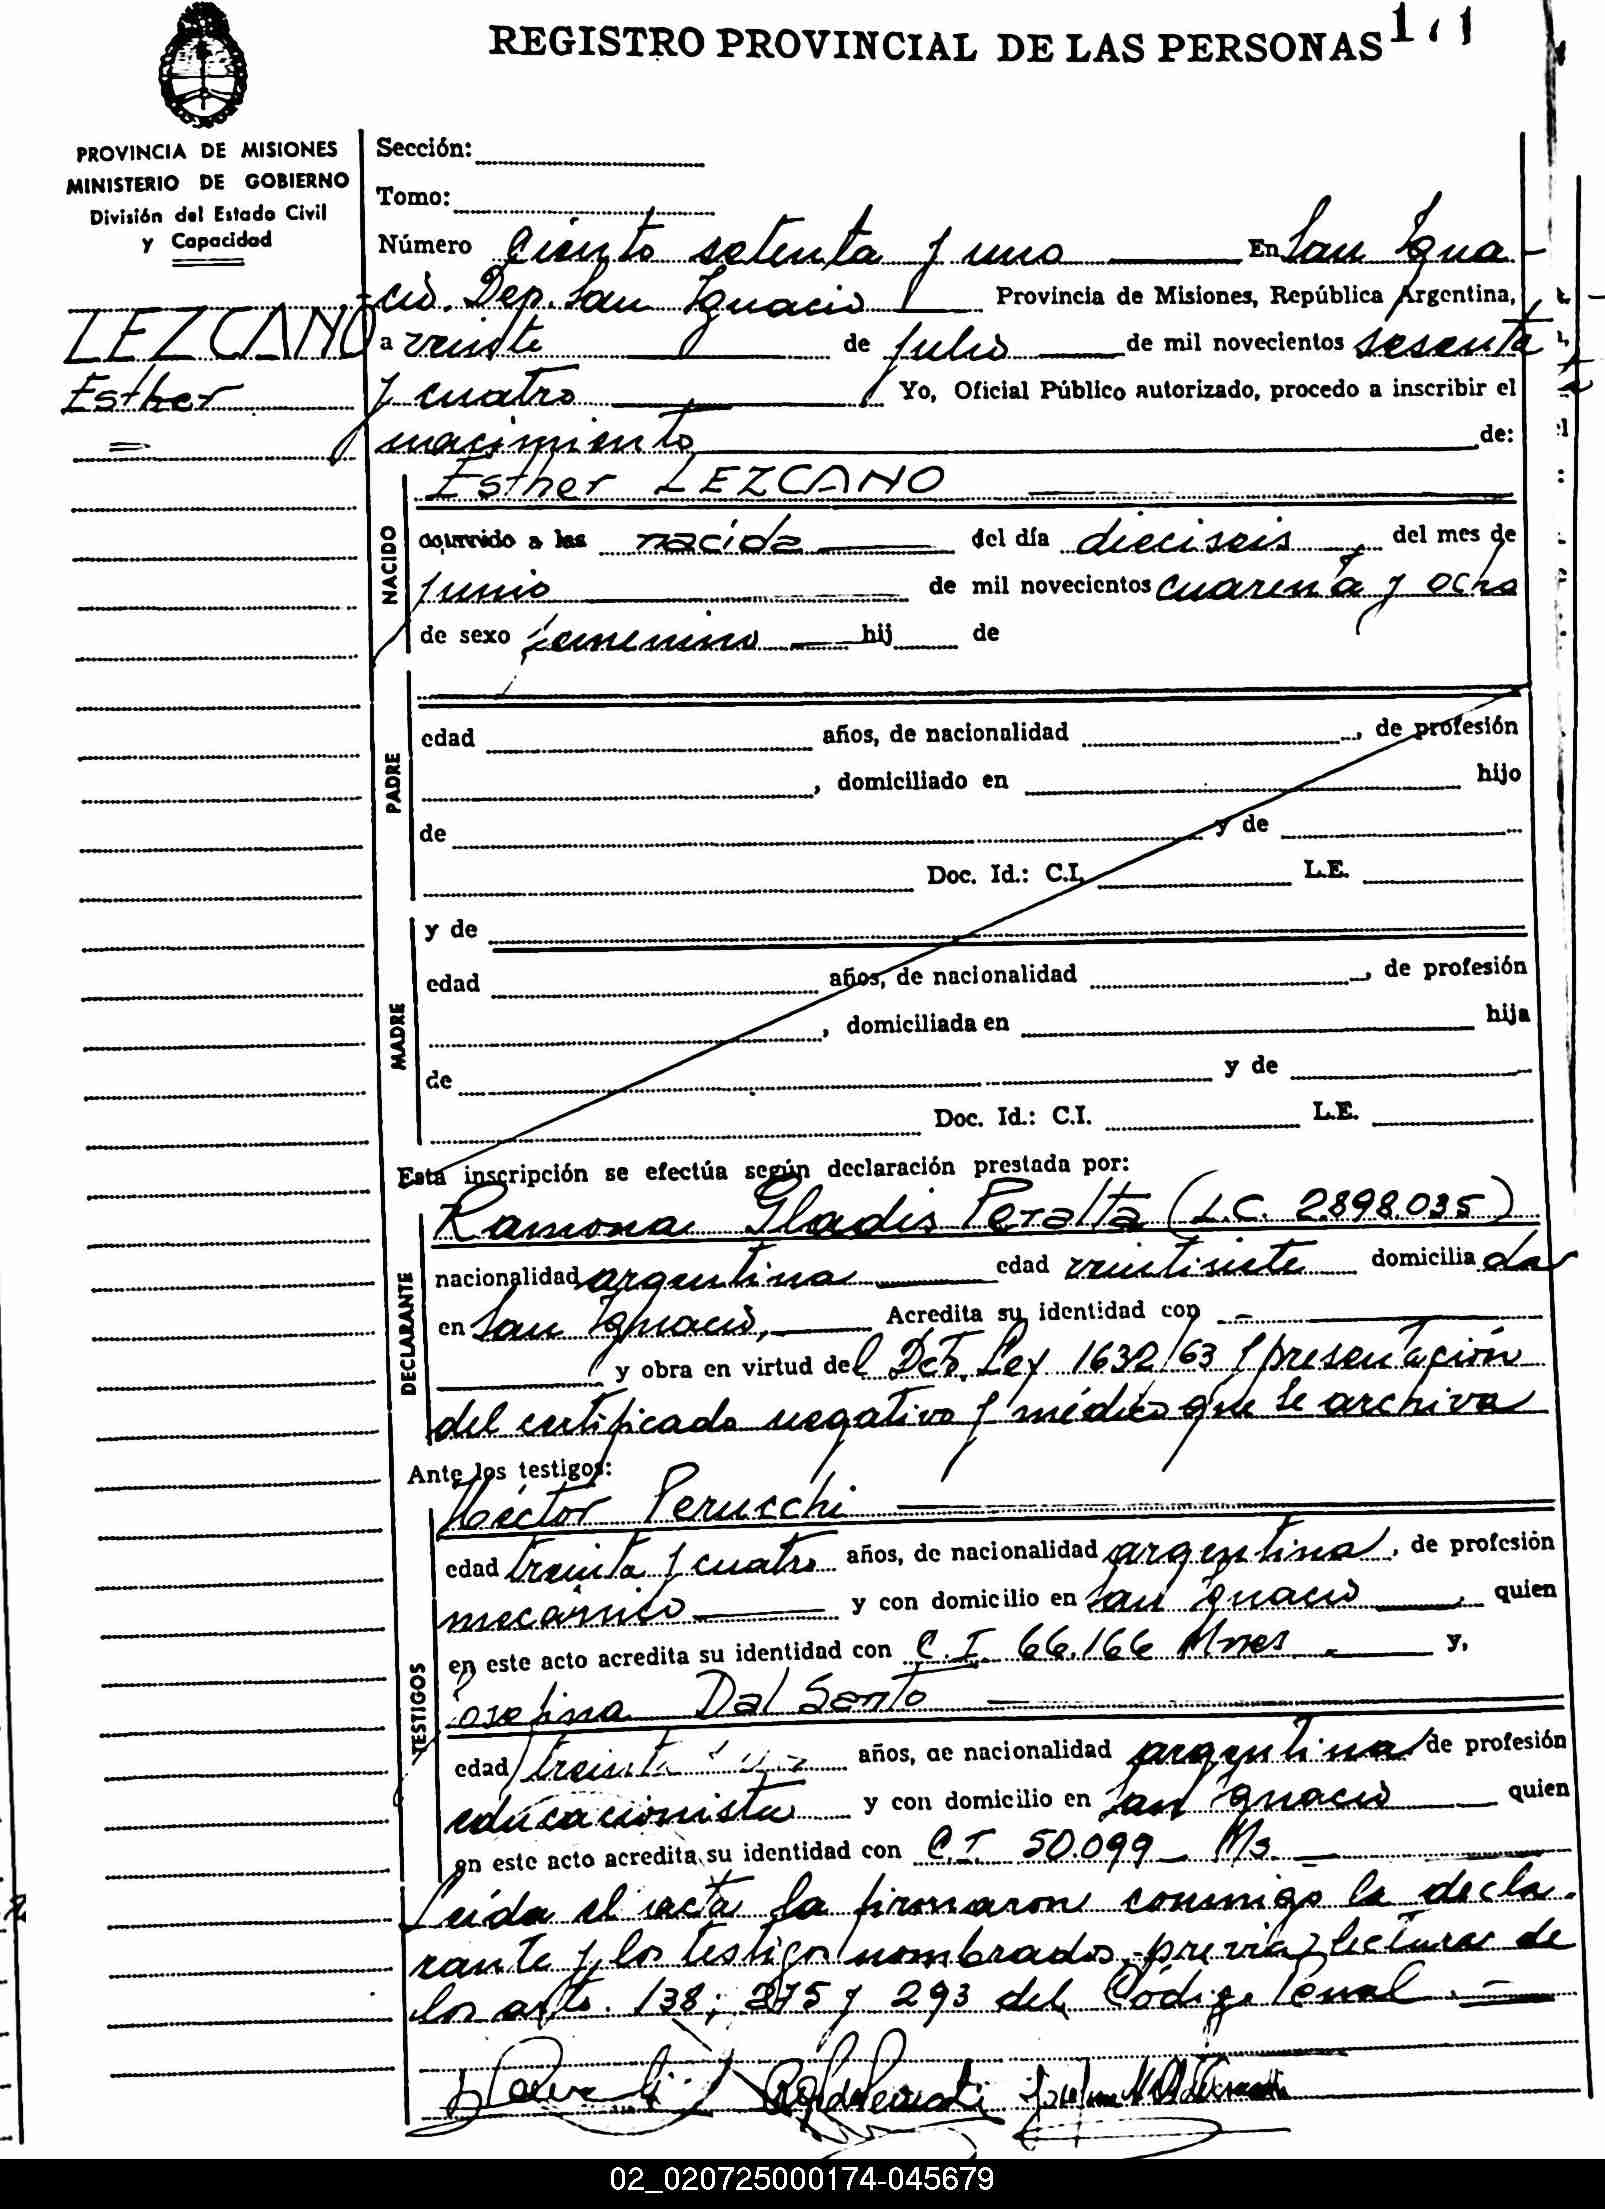 REGISTRO PROVINCIAL DE LAS PERSONAS
PROVINCIA DE MISIONES
MINISTERIO DE GOBIERNO
División del Estado Civil
y Capacidad
LEZCANO
Esther
Sección:
Tomo:
Número Ciento setenta y uno En San Igna-
cio. Dep. San Ignacio Provincia de Misiones, República Argentina,
a veinte de julio de mil novecientos sesenta
y cuatro Yo, Oficial Público autorizado, procedo a inscribir el
nacimiento de:
NACIDO
Esther LEZCANO
ocurrido a las nacida del día dieciseis del mes de
junio de mil novecientos cuarenta y ocho
de sexo femenino hij de
PADRE
edad años, de nacionalidad , de profesión
, domiciliado en hijo
de y de
Doc. Id.: C.I. L.E.
MADRE
y de
edad años, de nacionalidad , de profesión
, domiciliada en hija
de y de
Doc. Id.: C.I. L.E.
Esta inscripción se efectúa según declaración prestada por:
DECLARANTE
Ramona Gladis Peralta (L.C. 2.898.035)
nacionalidad argentina edad veintisiete domiciliada
en San Ignacio, Acredita su identidad con -
y obra en virtud del Dcto. Ley 1632/63 y presentación
del certificado negativo y médico que se archiva
Ante los testigos:
TESTIGOS
Héctor Perucchi
edad treinta y cuatro años, de nacionalidad argentina, de profesión
mecánico y con domicilio en San Ignacio quien
en este acto acredita su identidad con C.I. 66.166 Mnes. y,
Josefina Dal Santo
edad treinta años, de nacionalidad argentina de profesión
educacionista y con domicilio en San Ignacio quien
en este acto acredita su identidad con C.I. 50.099 Ms.
Leída el acta la firmaron conmigo la decla-
rante y los testigos nombrados, previa lectura de
los arts. 138; 275 y 293 del Código Penal.
02_020725000174-045679